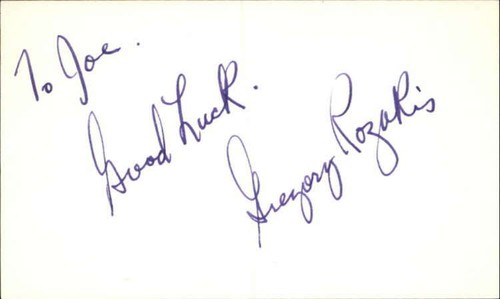 To Joe.
Good Luck.
Gregory Rozakis